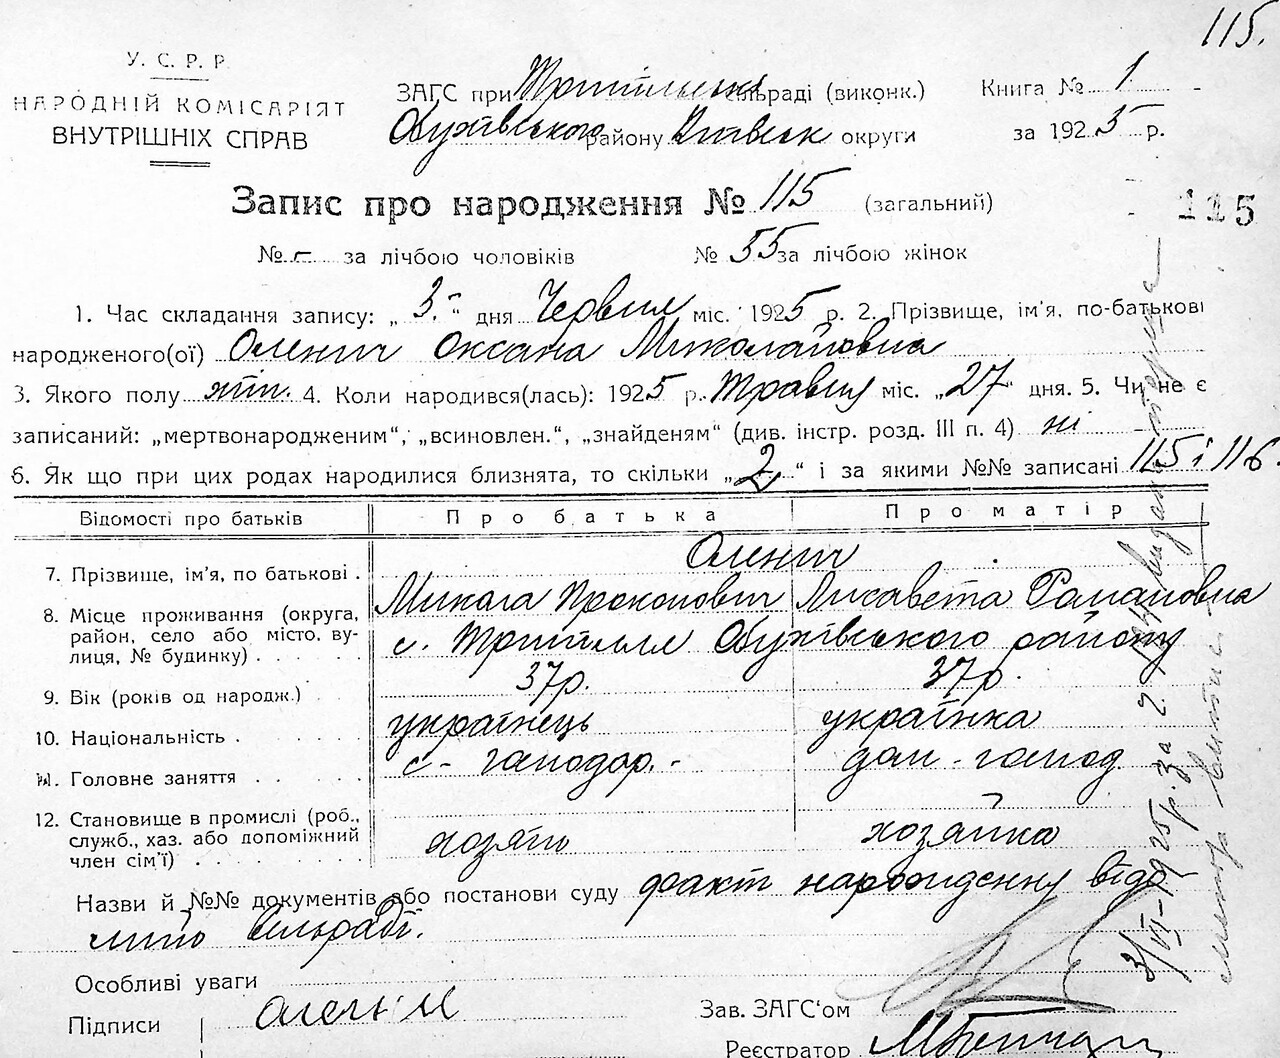 115.
У. С. Р. Р.
НАРОДНІЙ КОМІСАРІЯТ
ВНУТРІШНІХ СПРАВ
ЗАГС при Трипільські сільраді (виконк.)
Обухівського району Київськ округи
Книга № 1
за 1925 р.
Запис про народження № 115 (загальний)
115
№ – за лічбою чоловіків № 55 за лічбою жінок
1. Час складання запису: „ 3 “ дня Червня міс. 1925 р. 2. Прізвище, ім'я, по-батькові
народженого(ої) Оленич Оксана Миколайовна
3. Якого полу жін. 4. Коли народився(лась): 1925 р. Травня міс. „27“ дня. 5. Чи не є
записаний: „мертвонародженим“, „всиновлен.“, „знайденям“ (див. інстр. розд. III п. 4) ні
6. Як що при цих родах народилися близнята, то скільки „2“ і за якими №№ записані 115 і 116.
Відомості про батьків Про батька Про матір
Оленич
7. Прізвище, ім'я, по батькові . Микола Прокопович Лисавета Романовна
8. Місце проживання (округа,
район, село або місто, ву-
лиця, № будинку) . . . . . с. Трипілле Обухівського району
9. Вік (років од народж.) 37р. 37р.
10. Національність . українець українка
11. Головне заняття . . . . с-господар. - дом-господ
12. Становище в промислі (роб.,
служб., хаз. або допоміжний
член сім'ї) . . . . . . . хозяїн хозяйка
Назви й №№ документів або постанови суду факт народження відо-
мий сільраді.
Особливі уваги
Підписи Оленич
Зав. ЗАГС'ом
Реєстратор
3/VI-1925 р. за ч.